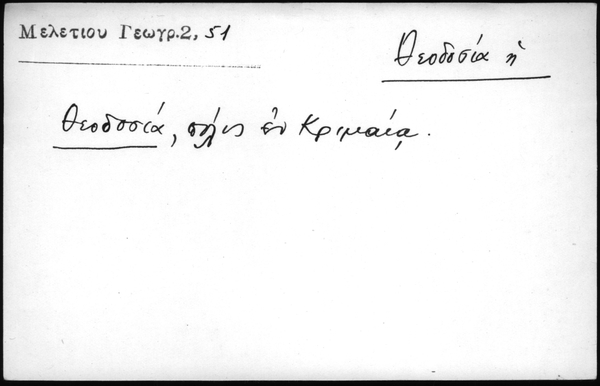 Μελετίου Γεωγρ.2, 51
Θεοδοσία ἡ
Θεοδοσία, πόλις ἐν Κριμαίᾳ.